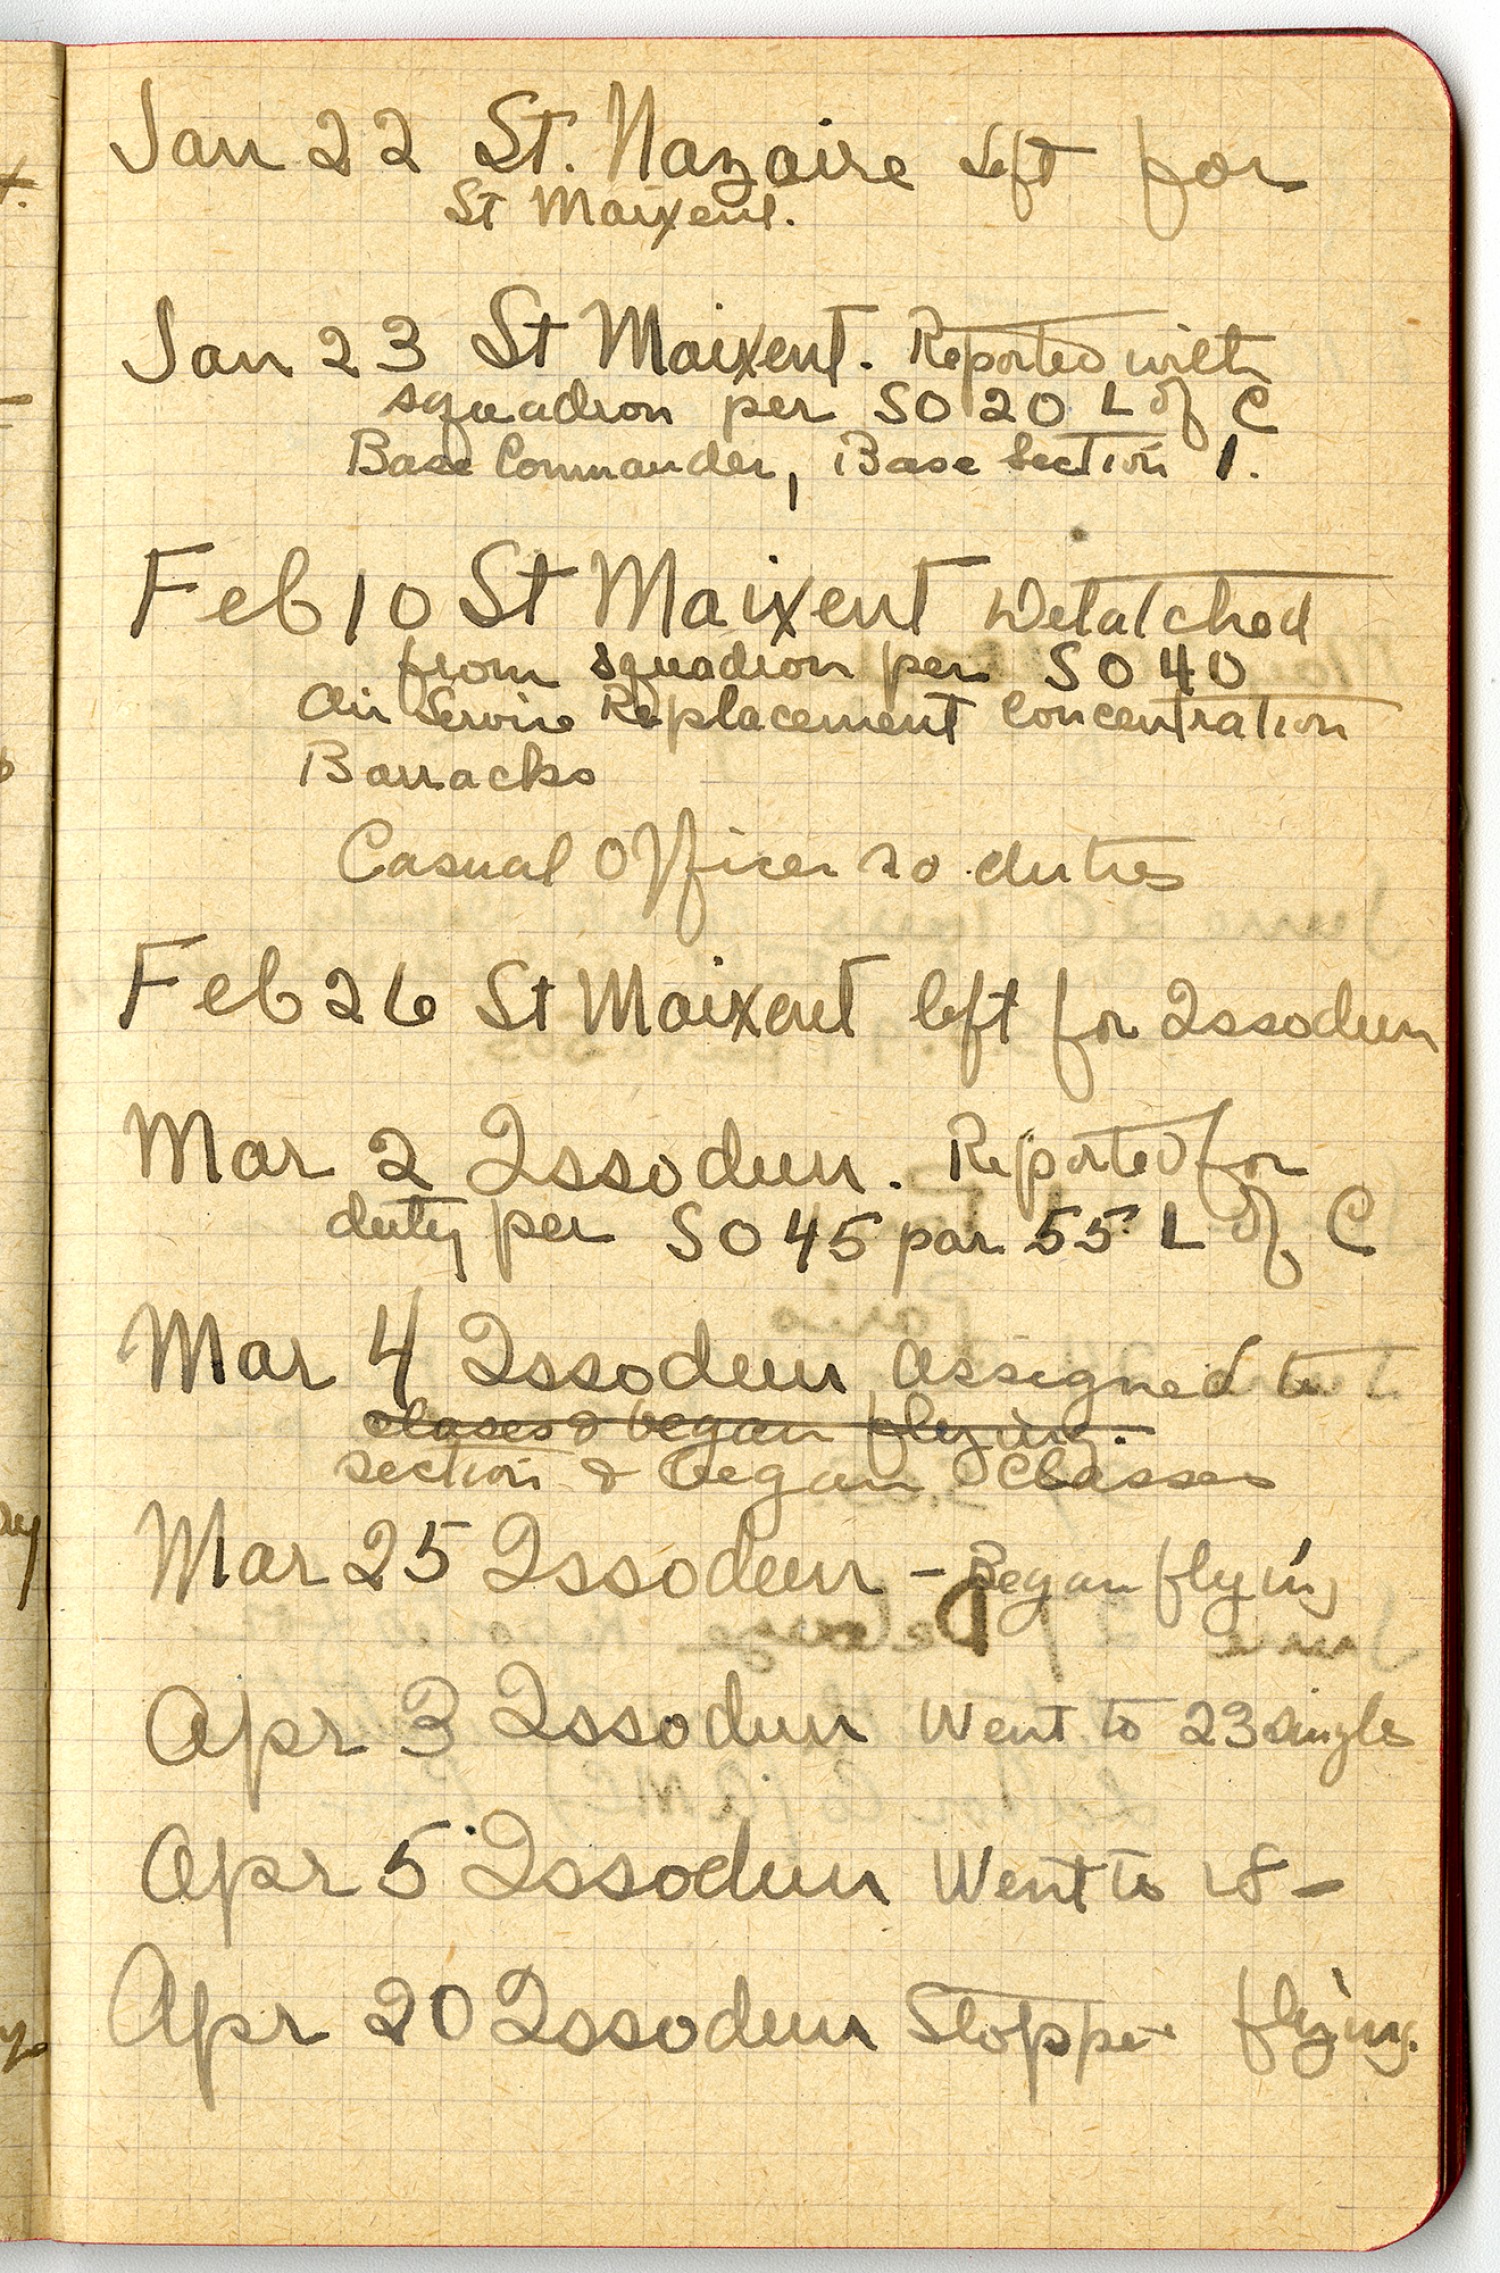 Jan 22 St. Nazaire Left for
St Maixent.
Jan 23 St Maixent. Reported with
squadron per SO 20 L of C
Base Commander, Base Section 1.
Feb 10 St Maixent Detatched
from squadron per SO 40
Air Service Replacement Concentration
Barracks
Casual Officer no duties
Feb 26 St Maixent left for Issodun
Mar 2 Issodeun. Reported for
duty per SO 45 par 55 L of C
Mar 4 Issodeun Assigned to
clases & began flying.
section & began classes
Mar 25 Issodeun - Began flying
Apr 3 Issodun Went to 23 single
Apr 5 Issodeun Went to 18 -
Apr 20 Issodeun Stopped flying.